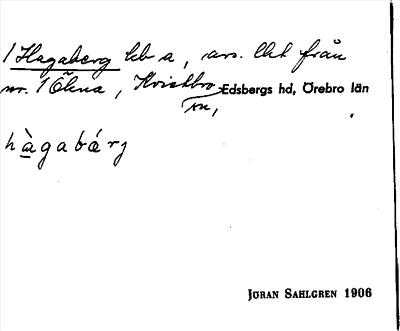 1 Hagaberg lht a, avs. lht från
nr. 1 Ökna, Kvistbro Edsbergs hd, Örebro län
sn,
hàgabárj
JÖRAN SAHLGREN 1906